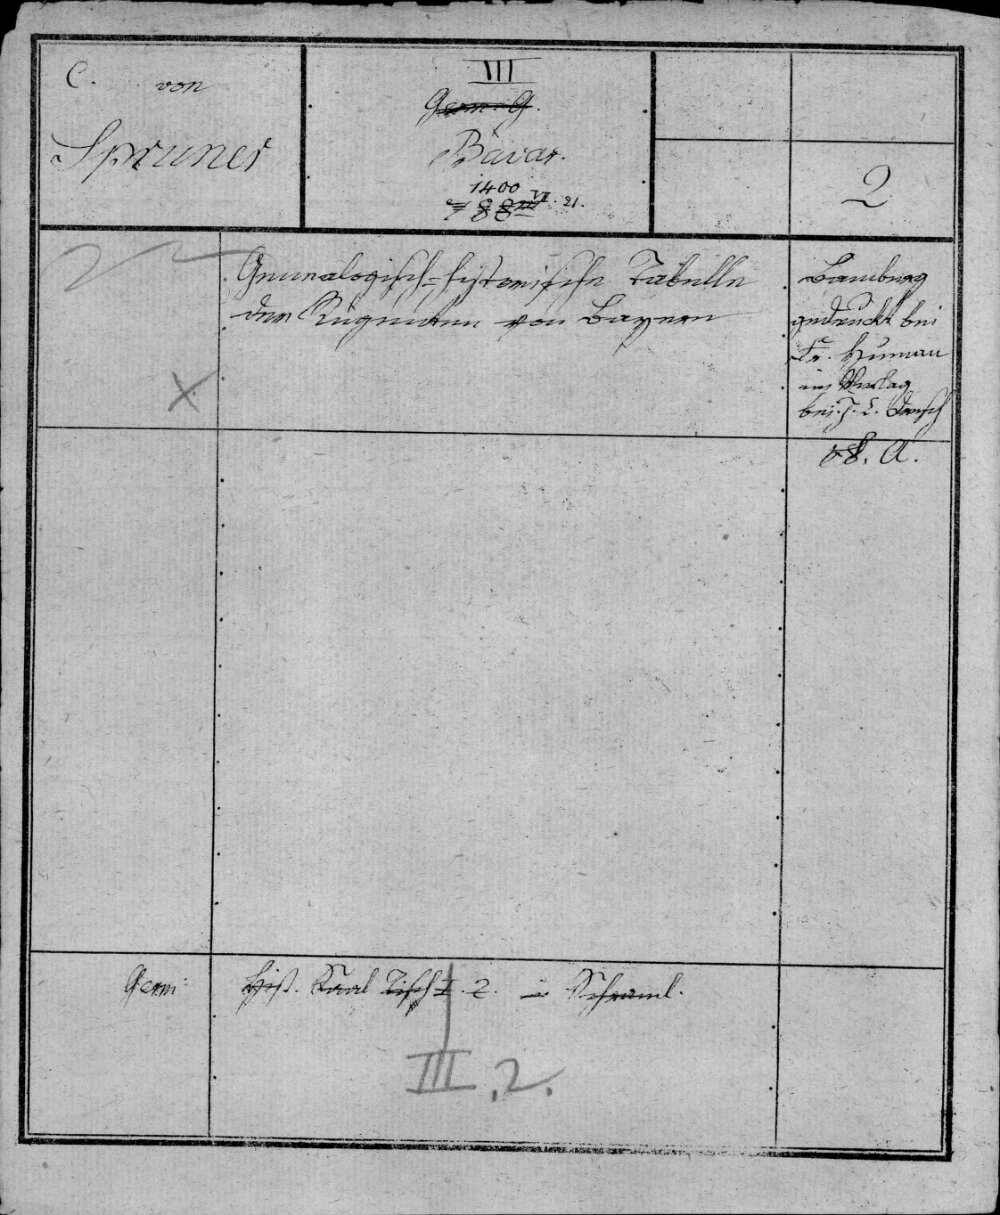 C. von
Spruner
III
Germ. G.
Bavar.
1400
VI. 21.
2
Genealogisch-historische Tabelle
der Regenten von Bayern
Bamberg
gedruckt bei
Fr. Human
im Verlag
bei J. C. Dresch
o. J. A.
Germ:
Hist. Saal Tisch I. 2. in Schraml.
III. 2.